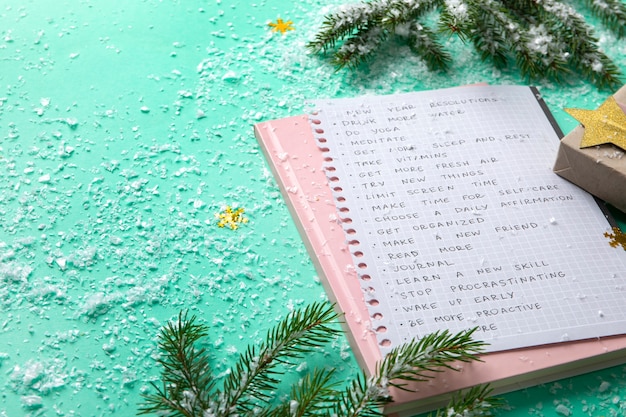 NEW YEAR RESOLUTIONS
DRINK MORE WATER
• DO YOGA
• MEDITATE
• GET MORE SLEEP AND REST
• TAKE VITAMINS
• GET MORE FRESH AIR
• TRY NEW THINGS
• LIMIT SCREEN TIME
• MAKE TIME FOR SELF-CARE
• CHOOSE A DAILY AFFIRMATION
• GET ORGANIZED
• MAKE A NEW FRIEND
• READ MORE
• JOURNAL
• LEARN A NEW SKILL
• STOP PROCRASTINATING
• WAKE UP EARLY
• BE MORE PROACTIVE